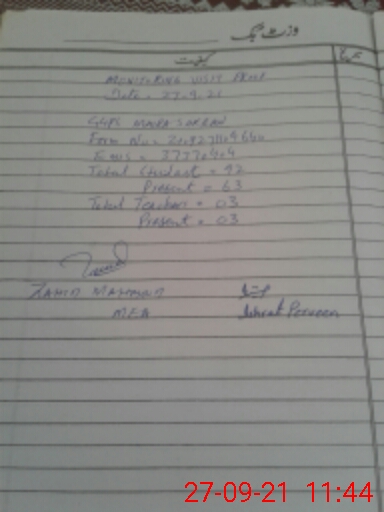 وزٹ بک
کیفیت
تاریخ
MONITORING VISIT
Date. 27.9.21
GGPS MAIRA
Form No =
Emis = 37370404
Total Student = 92
Present = 63
Total Teacher = 03
Present = 03
ZAHID MAHMOOD
MEA
Ishrat Perveen
27-09-21 11:44